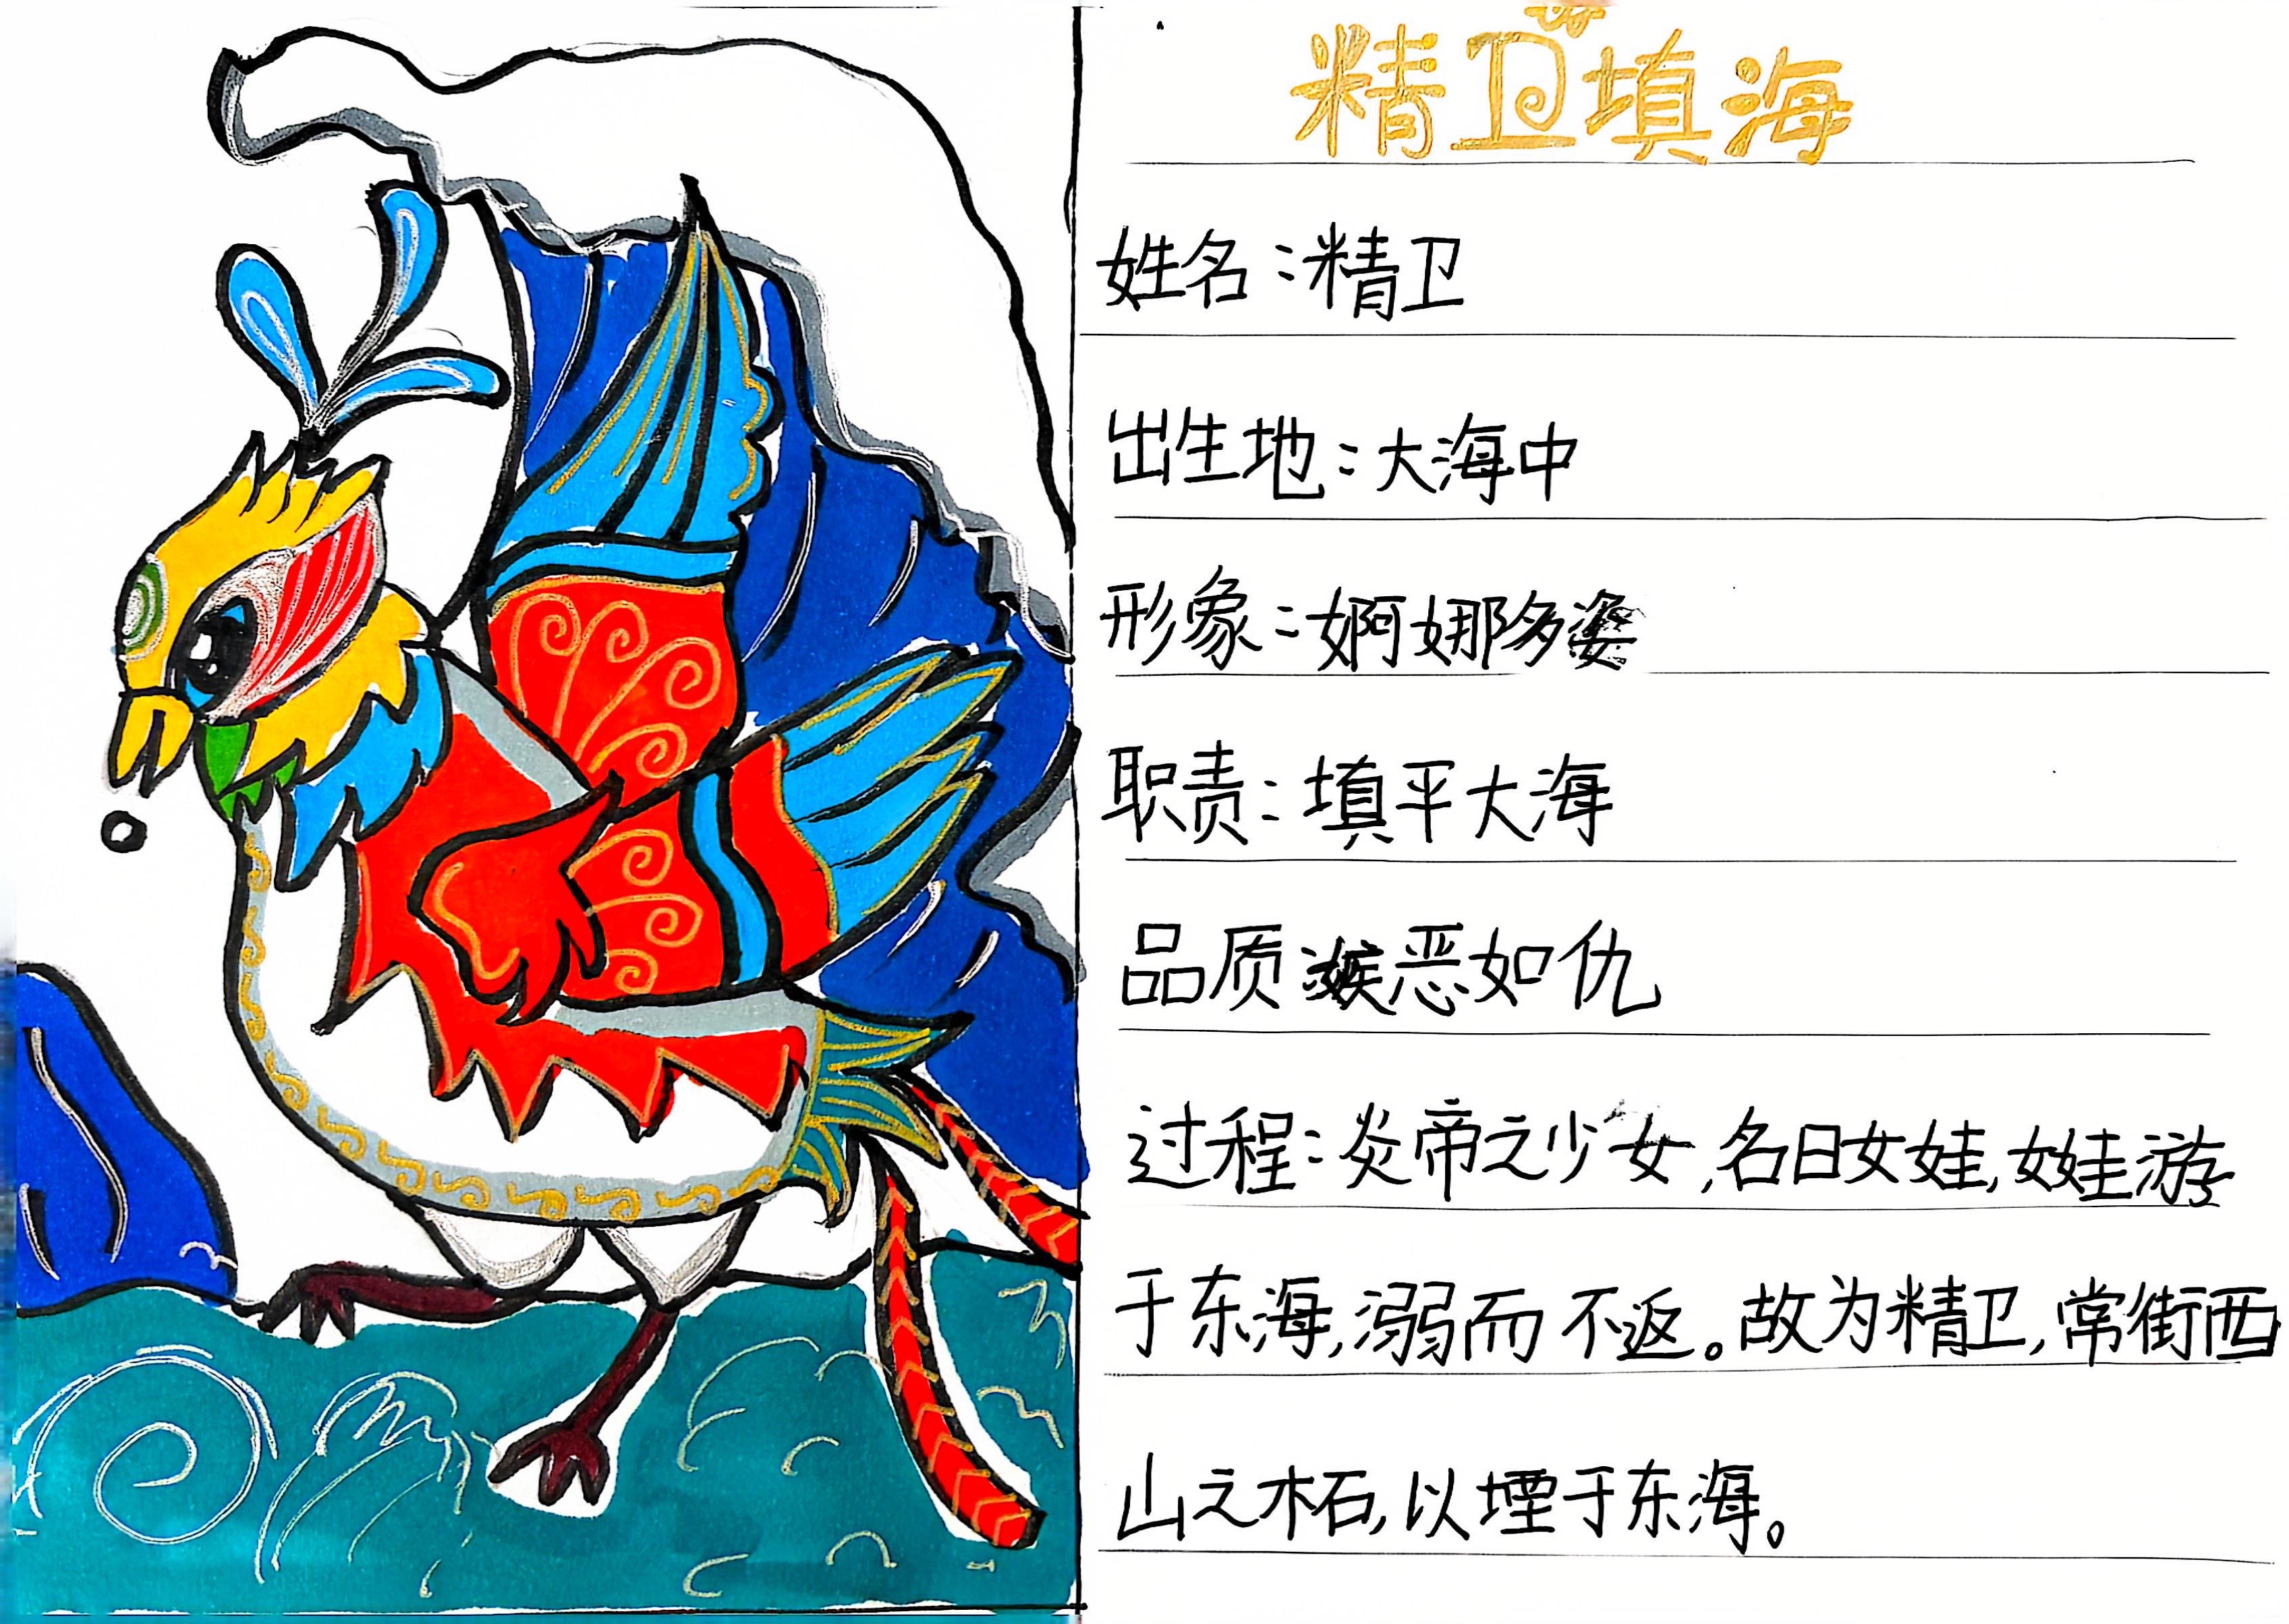 精卫填海
姓名:精卫
出生地:大海中
形象:婀娜多姿
职责:填平大海
品质嫉恶如仇
过程:炎帝之少女,名曰女娃,女娃游
于东海,溺而不返。故为精卫,常街西
山之木石,以堙于东海。